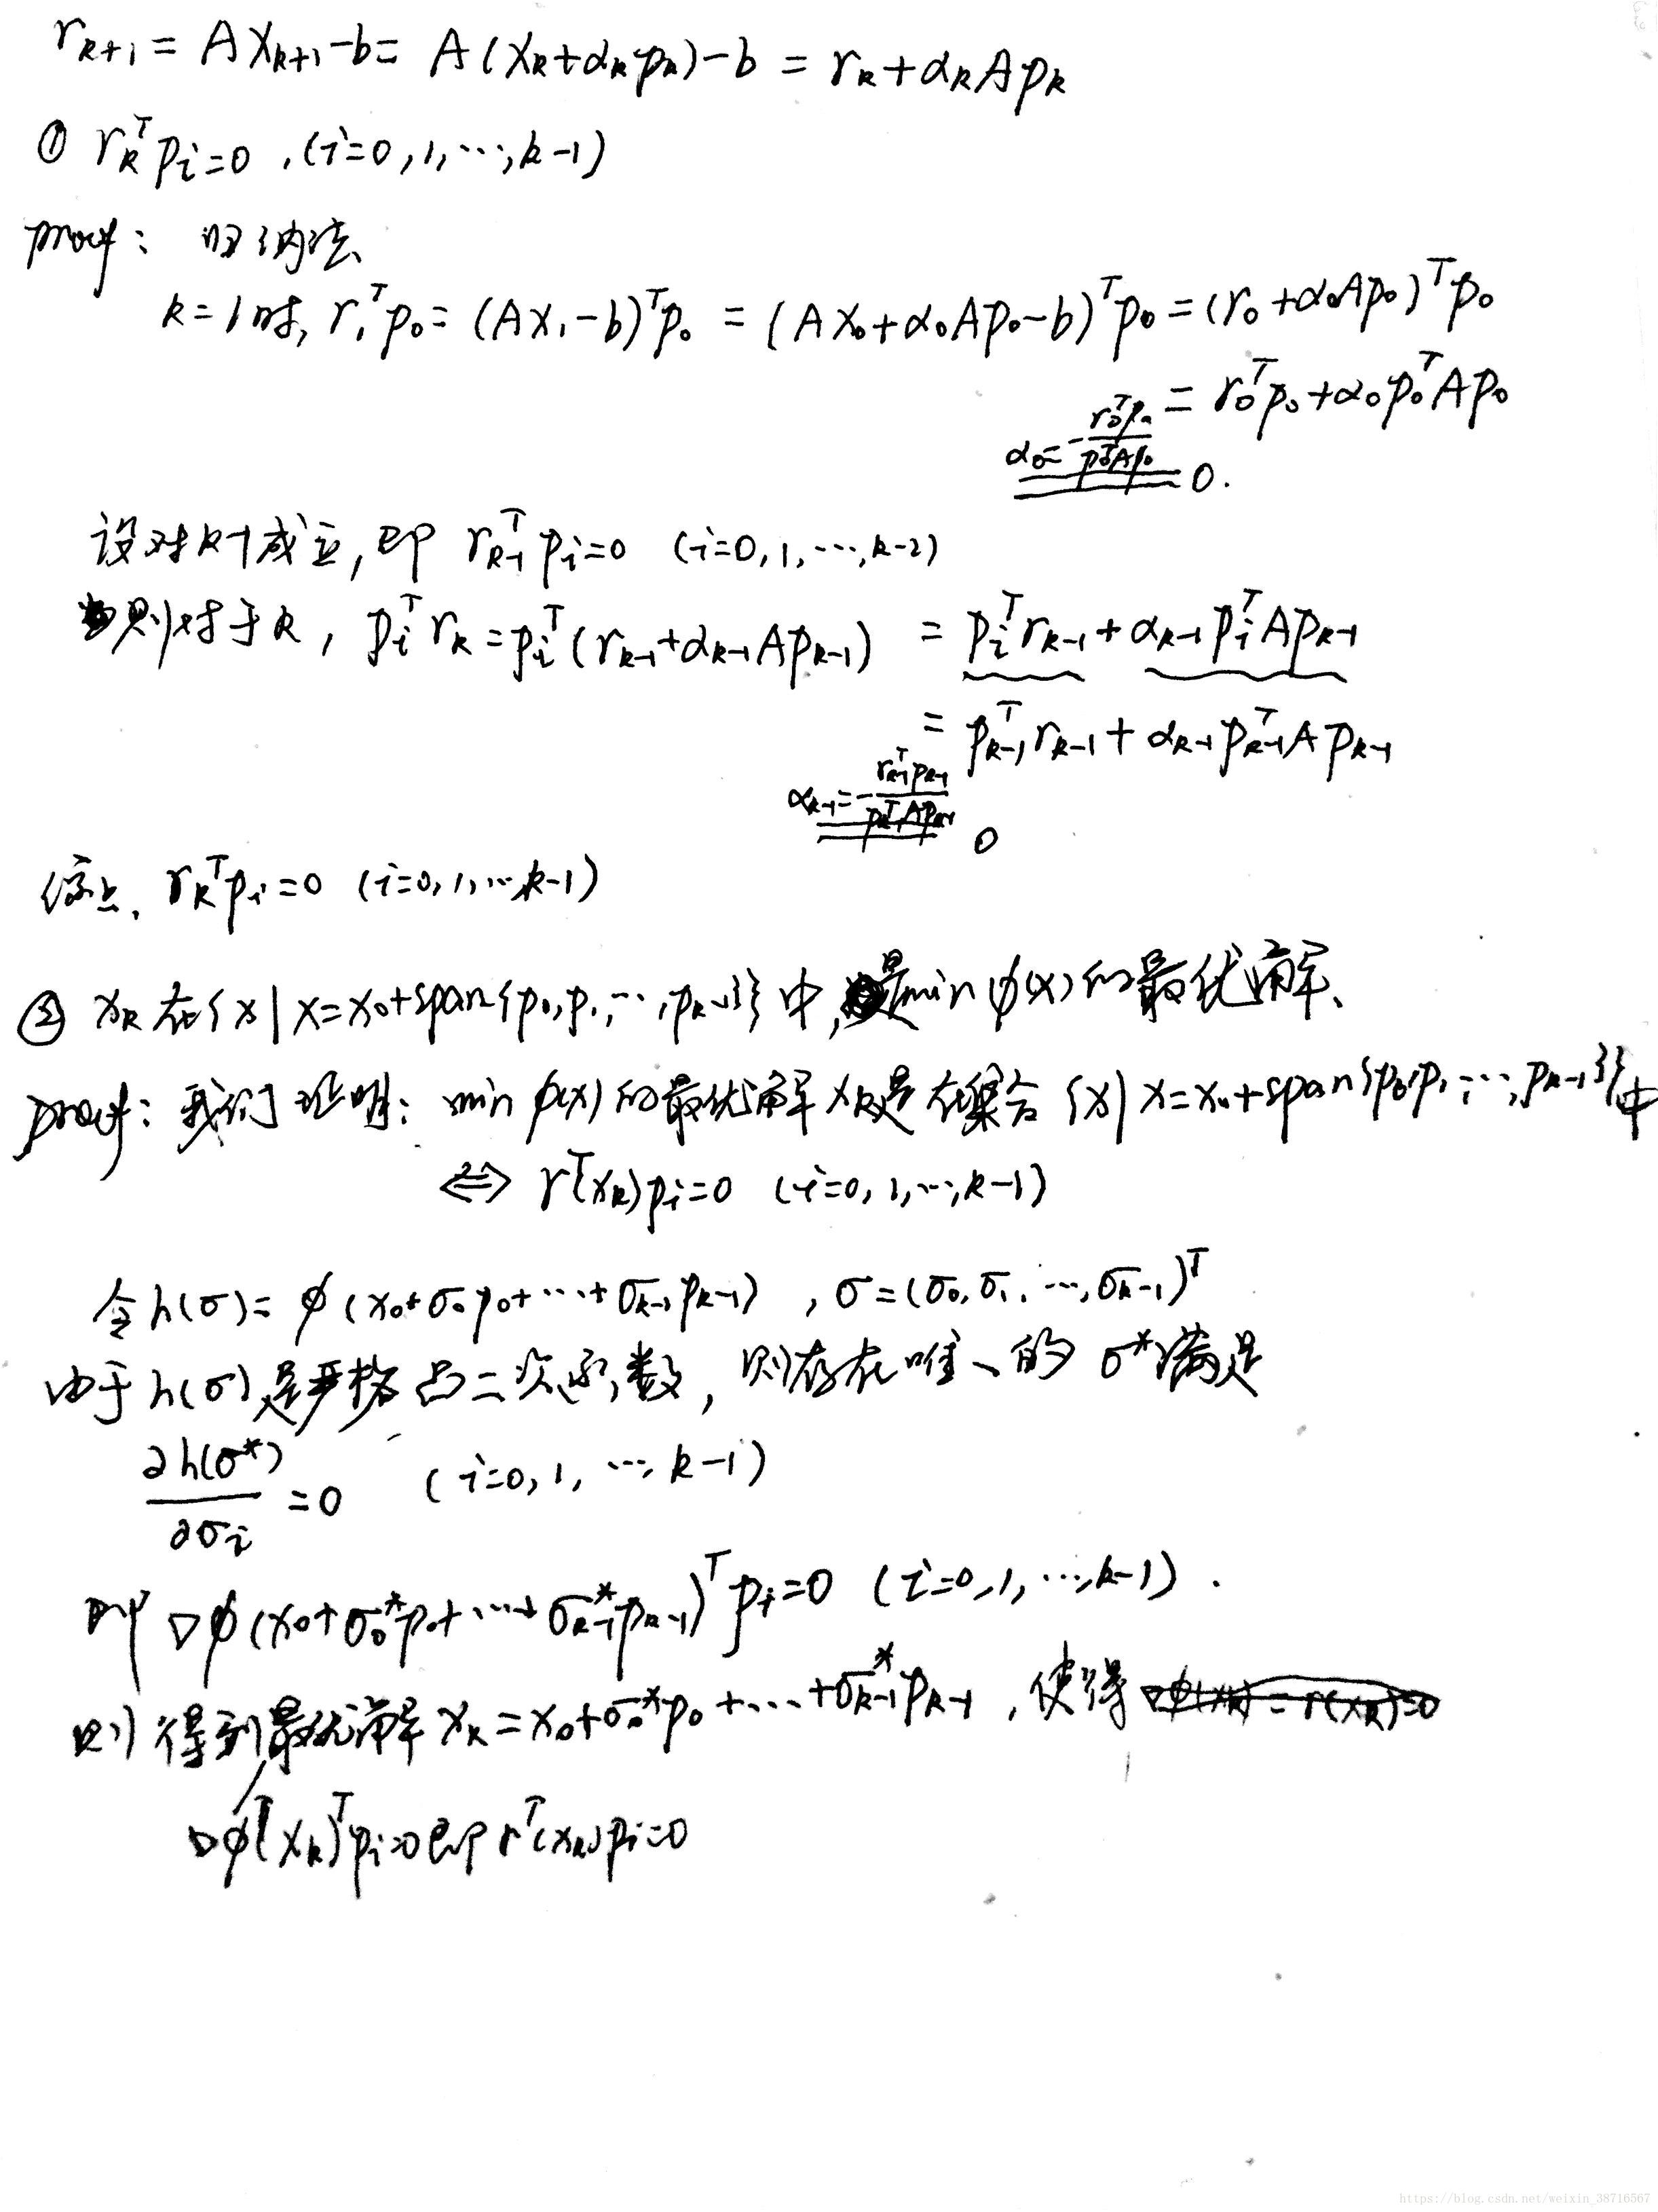 r_{k+1} = A x_{k+1} - b = A(x_k + α_k p_k) - b = r_k + α_k A p_k
① r_k^T p_i = 0 , (i=0,1,…,k-1)
proof: 归纳法
k=1时, r_1^T p_0 = (Ax_1-b)^T p_0 = (Ax_0+α_0Ap_0-b)^T p_0 = (r_0+α_0Ap_0)^T p_0
= r_0^T p_0 + α_0 p_0^T A p_0
α_0 = -\frac{r_0^T p_0}{p_0^T A p_0} = 0.
设对k-1成立, 即 r_{k-1}^T p_i = 0 (i=0,1,…,k-2)
则对于k, p_i^T r_k = p_i^T (r_{k-1}+α_{k-1}Ap_{k-1}) = p_i^T r_{k-1} + α_{k-1} p_i^T A p_{k-1}
= p_{k-1}^T r_{k-1} + α_{k-1} p_{k-1}^T A p_{k-1}
α_{k-1} = -\frac{r_{k-1}^T p_{k-1}}{p_{k-1}^T A p_{k-1}} = 0
综上, r_k^T p_i = 0 (i=0,1,…,k-1)
② x_k 在{x | x=x_0+span{p_0,p_1,…,p_{k-1}}} 中,是min φ(x) 的最优解、
proof: 我们证明: min φ(x) 的最优解 x_k是在集合 {x| x=x_0+span{p_0,p_1,…,p_{k-1}}}中
⟺ r^T(x_k)p_i=0 (i=0,1,…,k-1)
令h(σ)= φ(x_0+σ_0p_0+…+σ_{k-1}p_{k-1}) , σ=(σ_0,σ_1,…,σ_{k-1})^T
由于h(σ)是严格凸二次函数, 则存在唯一的 σ*满足
\frac{∂h(σ*)}{∂σ_i} = 0 (i=0,1,…,k-1)
即 ∇φ(x_0+σ_0*p_0+…+σ_{k-1}*p_{k-1})^T p_i=0 (i=0,1,…,k-1) .
则得到最优解x_k=x_0+σ_0*p_0+…+σ_{k-1}*p_{k-1} , 使得
∇φ(x_k)^T p_i=0 即 r^T(x_k)p_i=0
https://blog.csdn.net/weixin_38716567